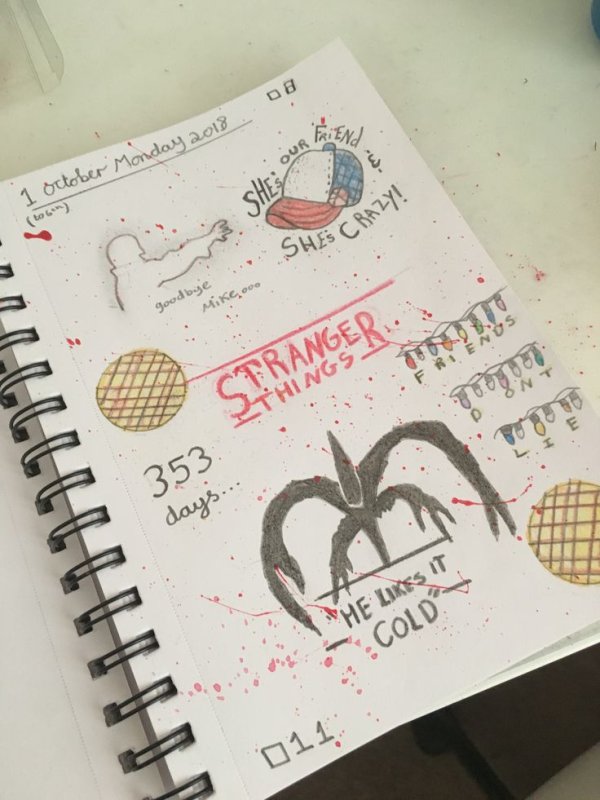 08
1 October Monday 2018
SHE'S OUR FRIEND &
SHE'S CRAZY!
goodbye
Mike...
STRANGER
THINGS
FRIENDS
DONT
LIE
353
days...
"HE LIKES IT
COLD"
011